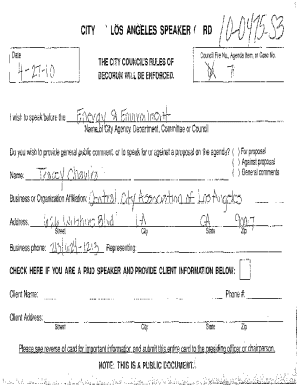 10-0475-S3
CITY LOS ANGELES SPEAKER RD
Date
4-27-10
THE CITY COUNCIL'S RULES OF
DECORUM WILL BE ENFORCED.
Council File No., Agenda Item, or Case No.
7
I wish to speak before the Energy & Environment
Name of City Agency, Department, Committee or Council
Do you wish to provide general public comment, or to speak for or against a proposal on the agenda? ( ) For proposal
( ) Against proposal
( ) General comments
Name: Tracey Chavira
Business or Organization Affiliation: Central City Association of Los Angeles
Address: 626 Wilshire Blvd LA CA 90017
Street City State Zip
Business phone: 213/624-1213 Representing:
CHECK HERE IF YOU ARE A PAID SPEAKER AND PROVIDE CLIENT INFORMATION BELOW:
Client Name: Phone #:
Client Address:
Street City State Zip
Please see reverse of card for important information and submit this entire card to the presiding officer or chairperson.
NOTE: THIS IS A PUBLIC DOCUMENT.